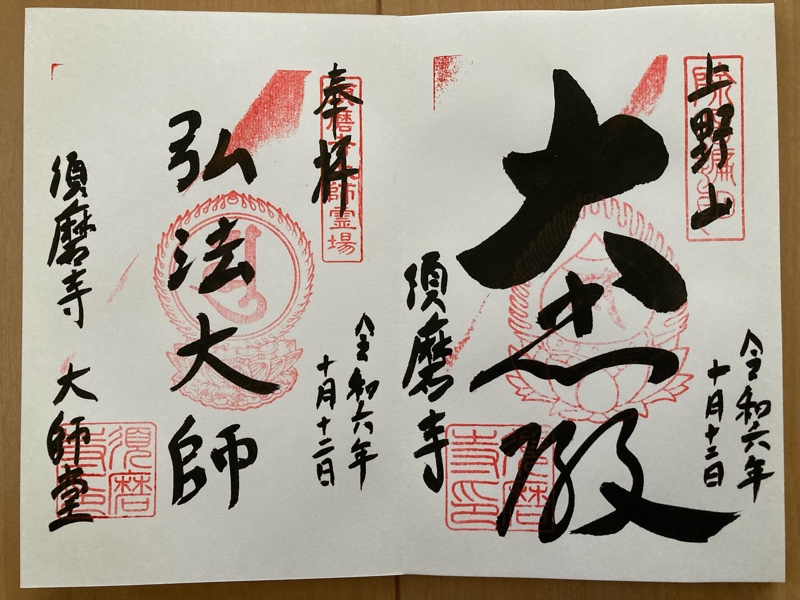 上野山
令和六年
十月十二日
大悲殿
須磨寺
須磨寺印
奉拝
須磨寺大師霊場
令和六年
十月十二日
弘法大師
須磨寺 大師堂
須磨寺印